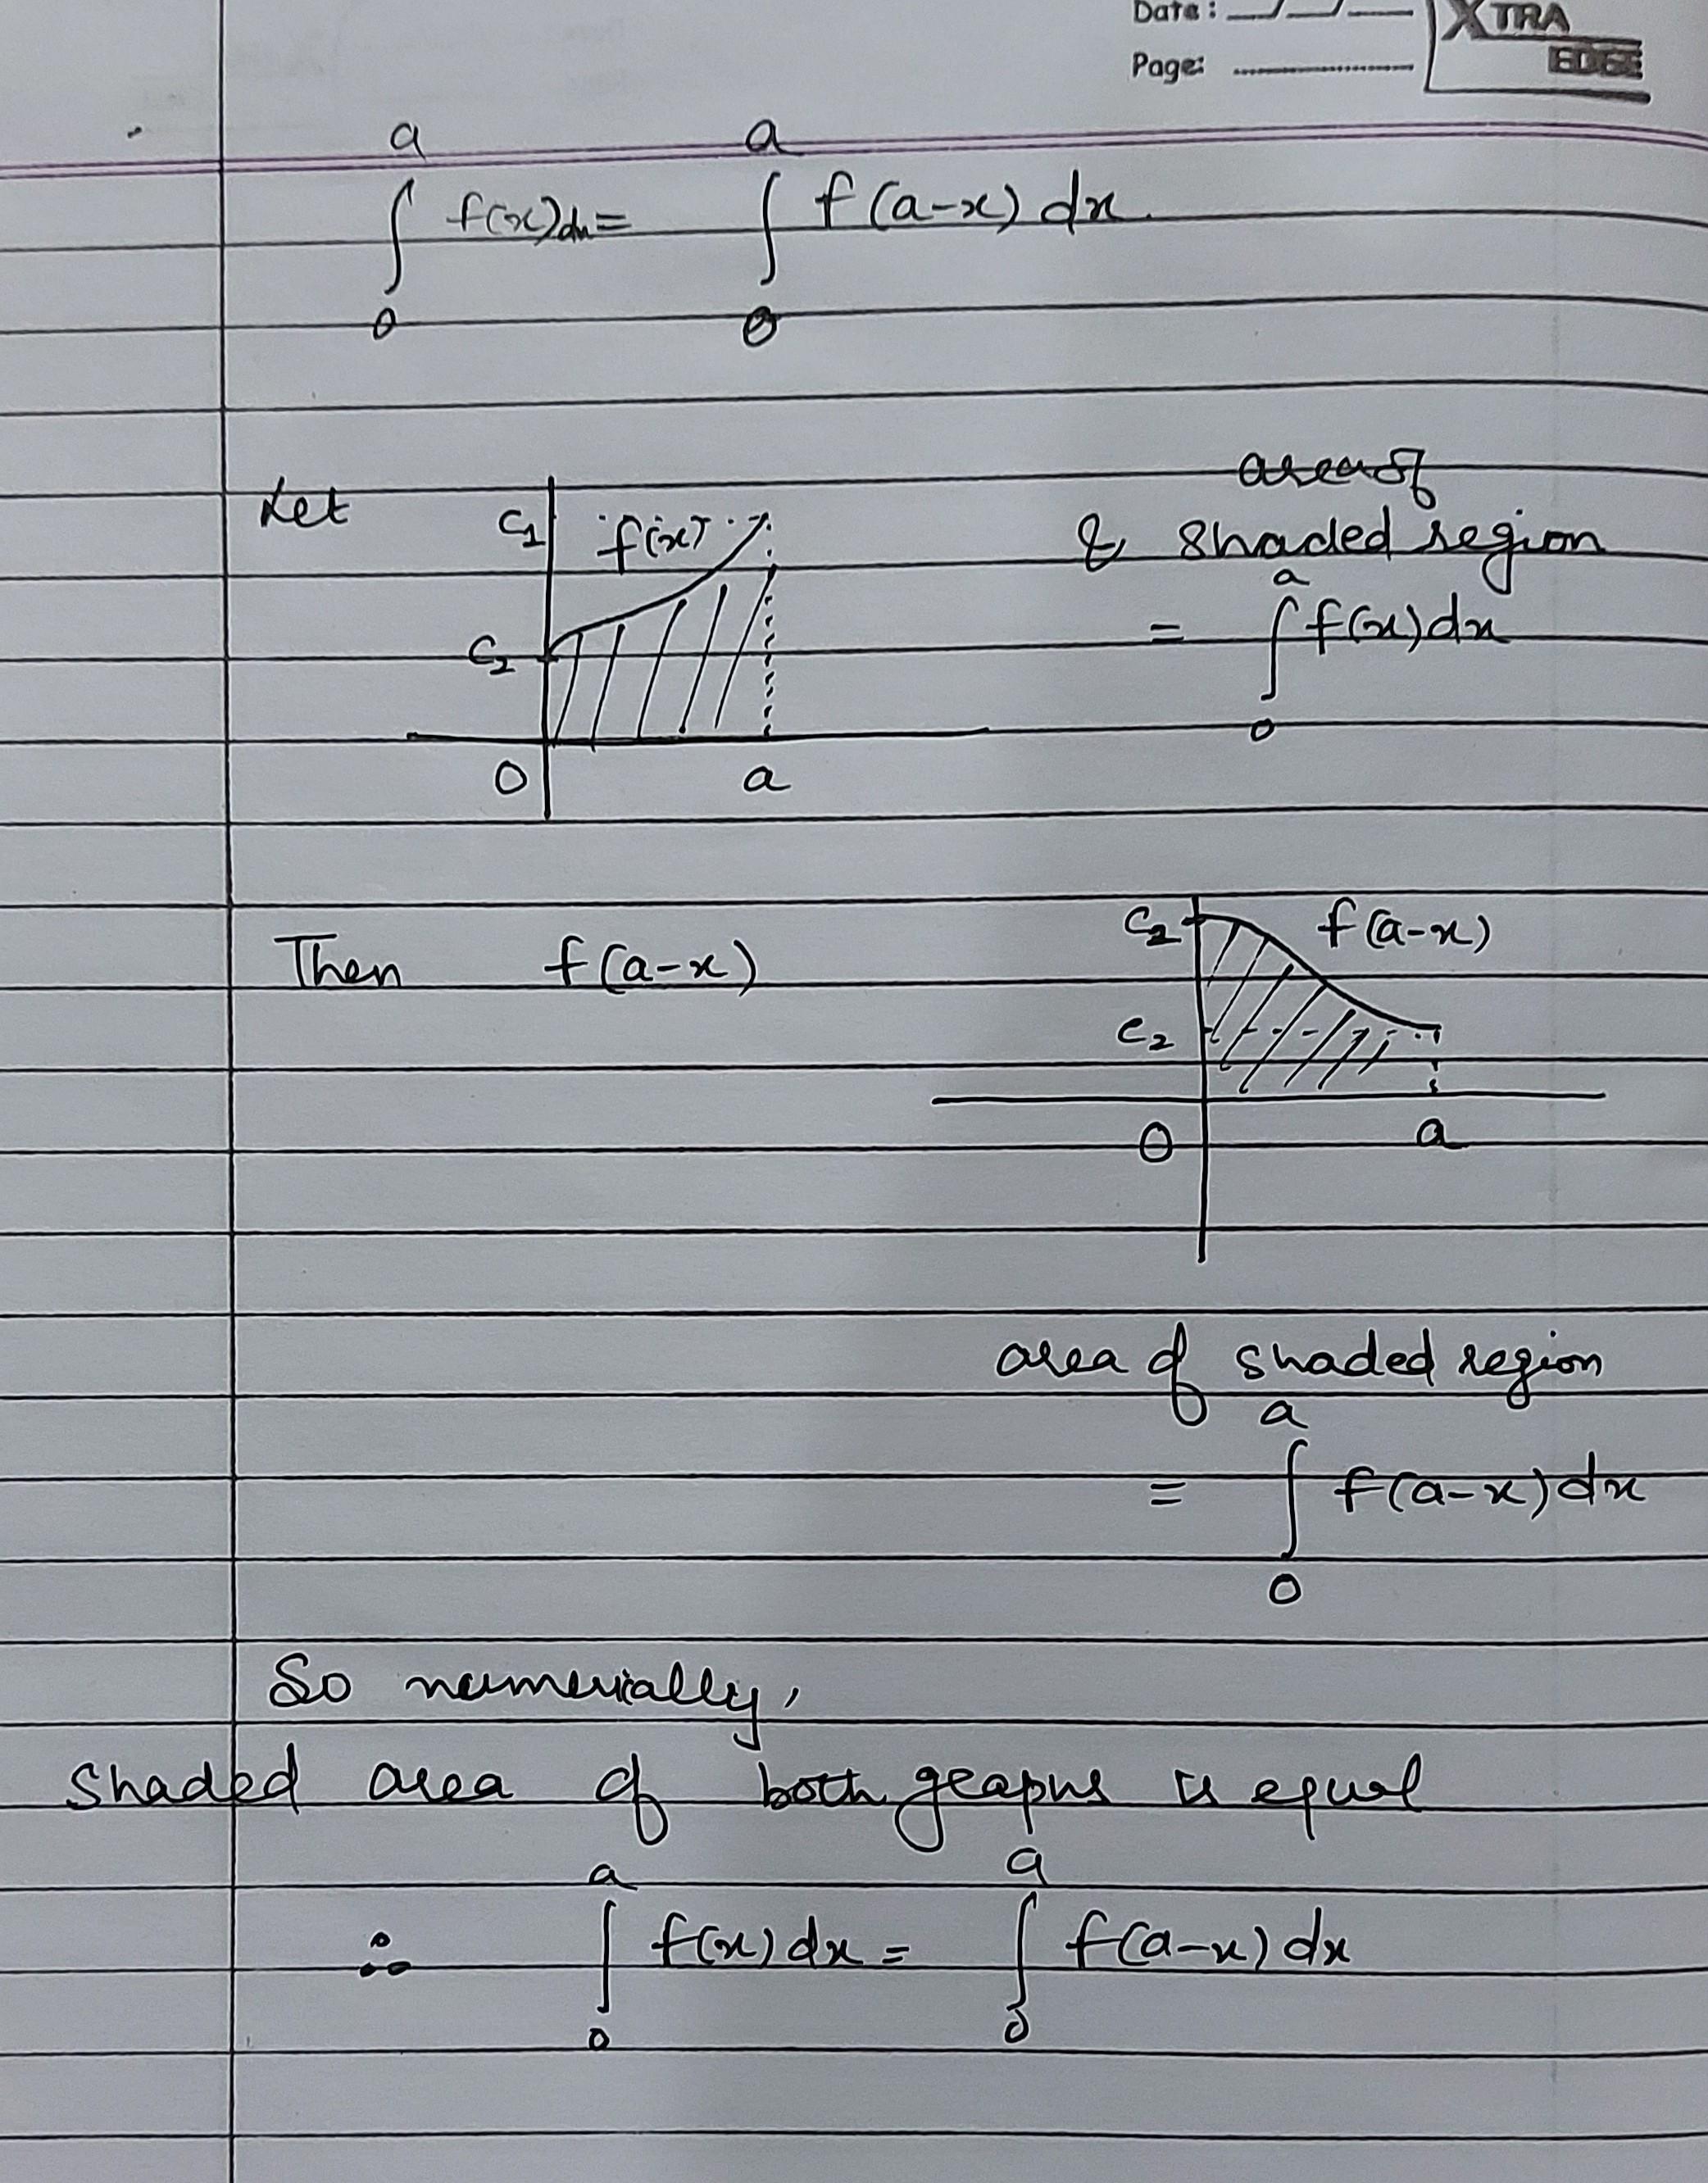 Date: __/__/__
Page: ..........
XTRA EDGE
∫₀ᵃ f(x)dx = ∫₀ᵃ f(a-x) dx.
Let
C₁
f(x)
C₂
O a
area of
& shaded region
= ∫₀ᵃ f(x)dx
Then f(a-x)
C₂ f(a-x)
C₂
O a
area of shaded region
= ∫₀ᵃ f(a-x)dx
So numerically,
shaded area of both graphs is equal
∴ ∫₀ᵃ f(x) dx = ∫₀ᵃ f(a-x) dx